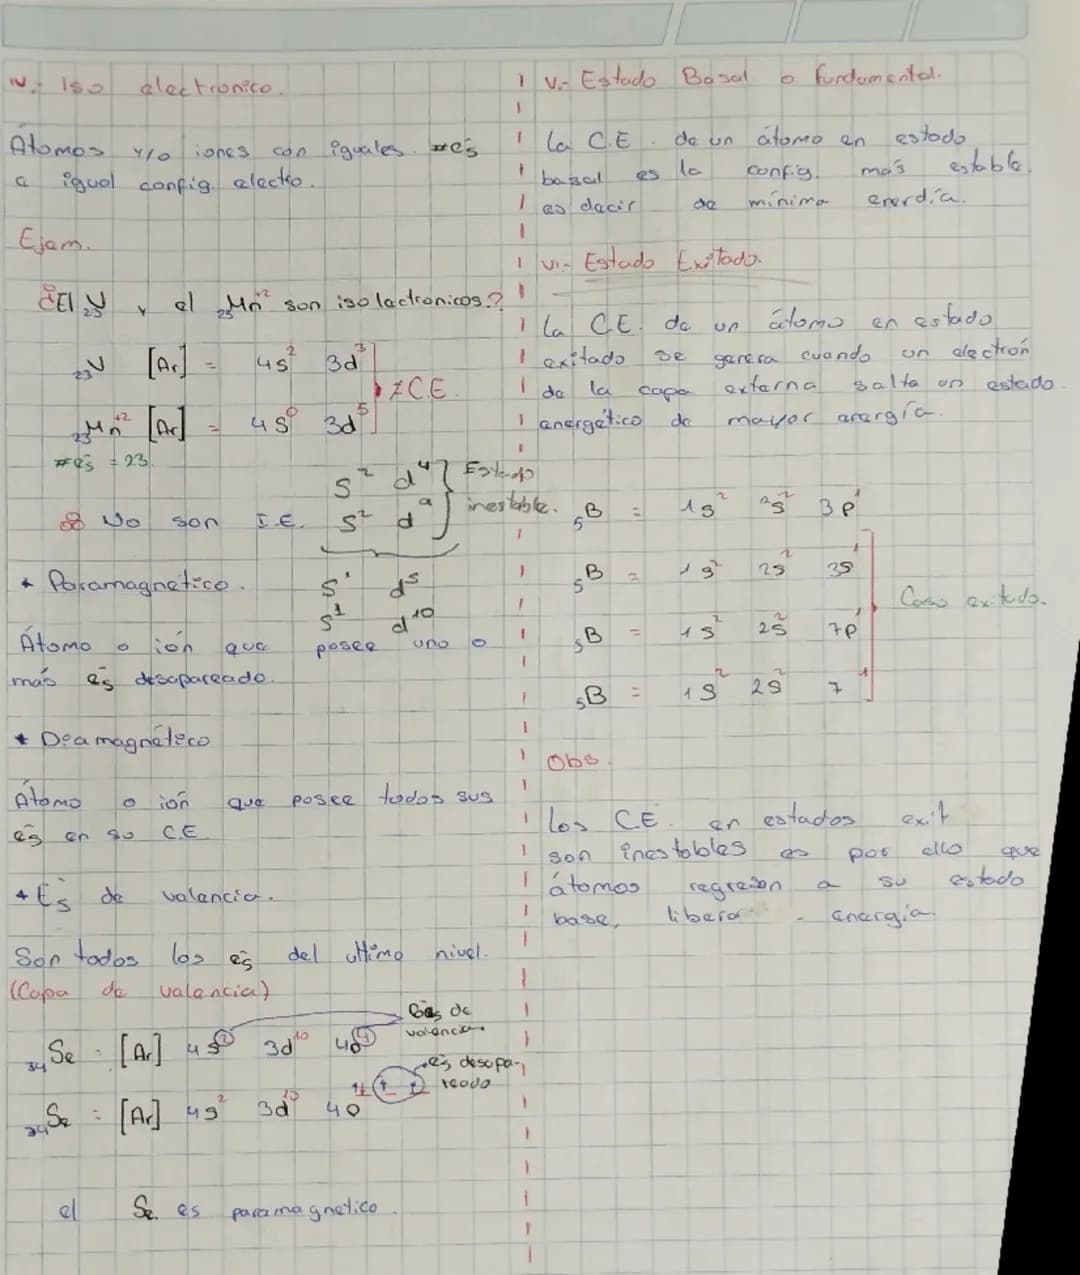 IV.- Iso electronico.
Átomos y/o iones con iguales #es
a igual config. electro.
Ejem.
¿El ₂₃V y el ₂₅Mn⁺² son isolectronicos?
₂₃V [Ar] = 4s² 3d³
≠ C.E.
₂₅Mn⁺² [Ar] = 4s⁰ 3d⁵
#es = 23.
s² d⁴ Estado
No son I.E. s² d⁹ inestable.
* Paramagnético. s¹ d⁵
s¹ d¹⁰
Átomo o ión que posee uno o
más es desapareado.
* Diamagnético
Átomo o ión que posee todos sus
es en su C.E
* Es de valencia.
Son todos los es del ultimo nivel.
(Capa de valencia)
6es de
valencia
₃₄Se : [Ar] 4s² 3d¹⁰ 4p⁴
es desapa-
reado
₃₄Se : [Ar] 4s² 3d¹⁰ 4p
el Se. es paramagnetico.
V.- Estado Basal o fundamental.
La C.E. de un átomo en estado
basal es la config. más estable
es decir de mínima enerdía.
VI.- Estado Exitado.
La C.E. de un átomo en estado
exitado se genera cuando un electrón
de la capa externa salta un estado
energético de mayor energía.
₅B = 1s² 2s² 3p¹
₅B = 1s² 2s² 3s¹
Caso exitado.
₅B = 1s² 2s² 7p¹
₅B = 1s² 2s² 7¹
Obs
Los C.E. en estados exit
son inestables es por ello que
átomos regresan a su estado
base, liberar energía